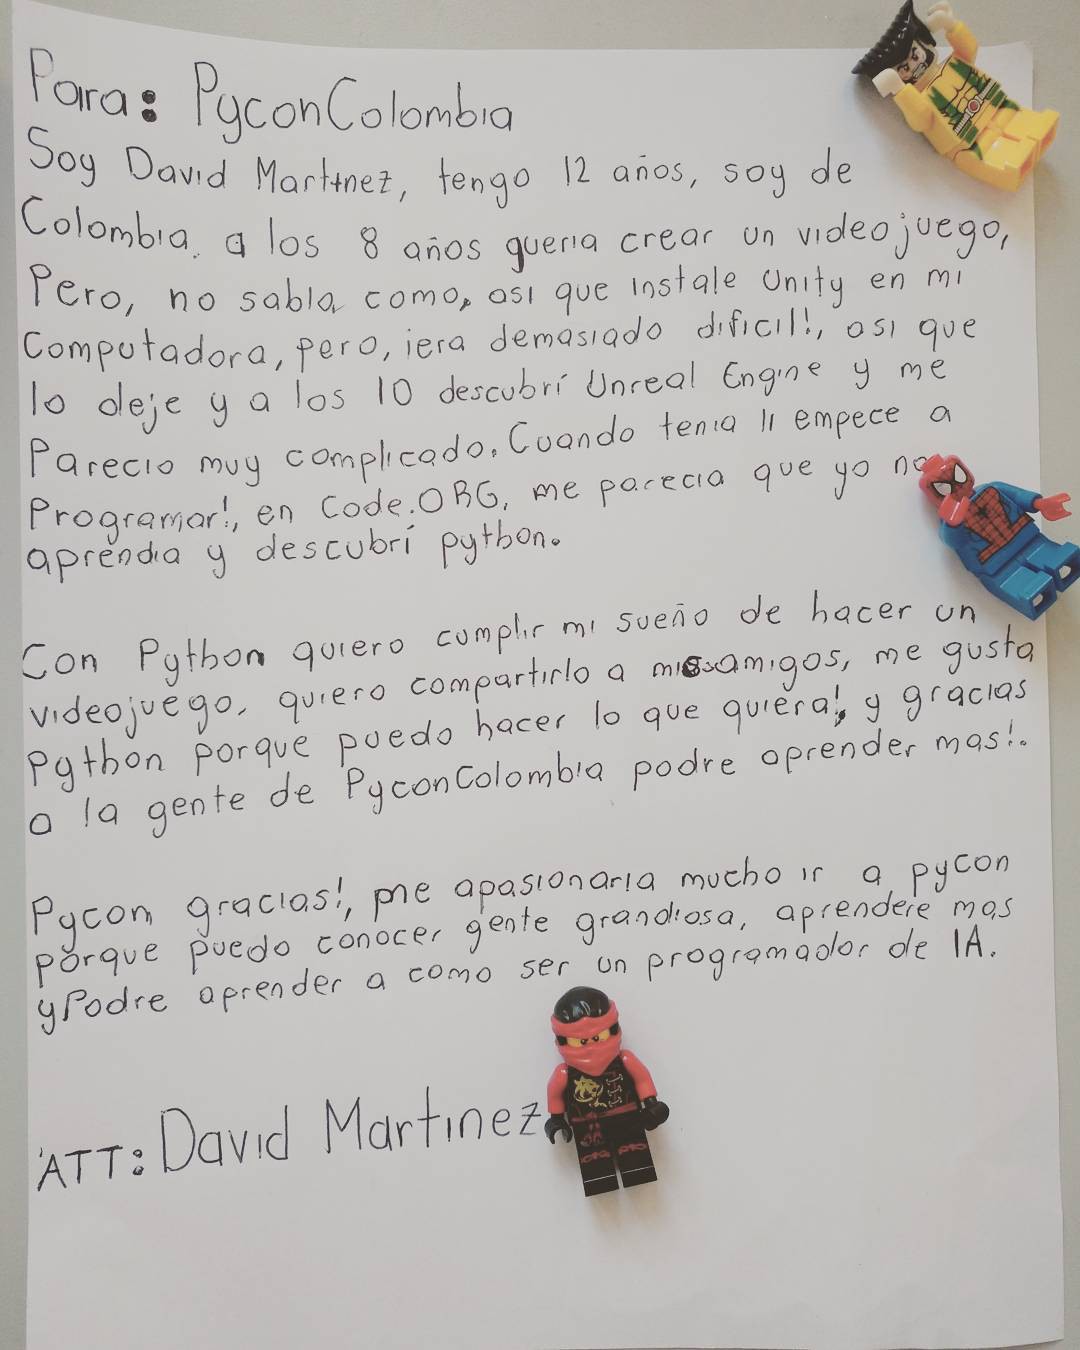 Para: PyconColombia
Soy David Martinez, tengo 12 años, soy de
Colombia. a los 8 años queria crear un videojuego,
Pero, no sabia como, asi que instale Unity en mi
computadora, pero, ¡era demasiado dificil!, asi que
lo deje y a los 10 descubrí Unreal Engine y me
Parecio muy complicado. Cuando tenia 11 empece a
Programar!, en Code.ORG, me parecia que yo no
aprendia y descubrí python.
Con Python quiero cumplir mi sueño de hacer un
videojuego, quiero compartirlo a mis amigos, me gusta
Python porque puedo hacer lo que quiera!, y gracias
a la gente de PyconColombia podre aprender mas!.
Pycon gracias!, me apasionaria mucho ir a pycon
porque puedo conocer gente grandiosa, aprendere mas
y Podre aprender a como ser un programador de IA.
ATT: David Martinez